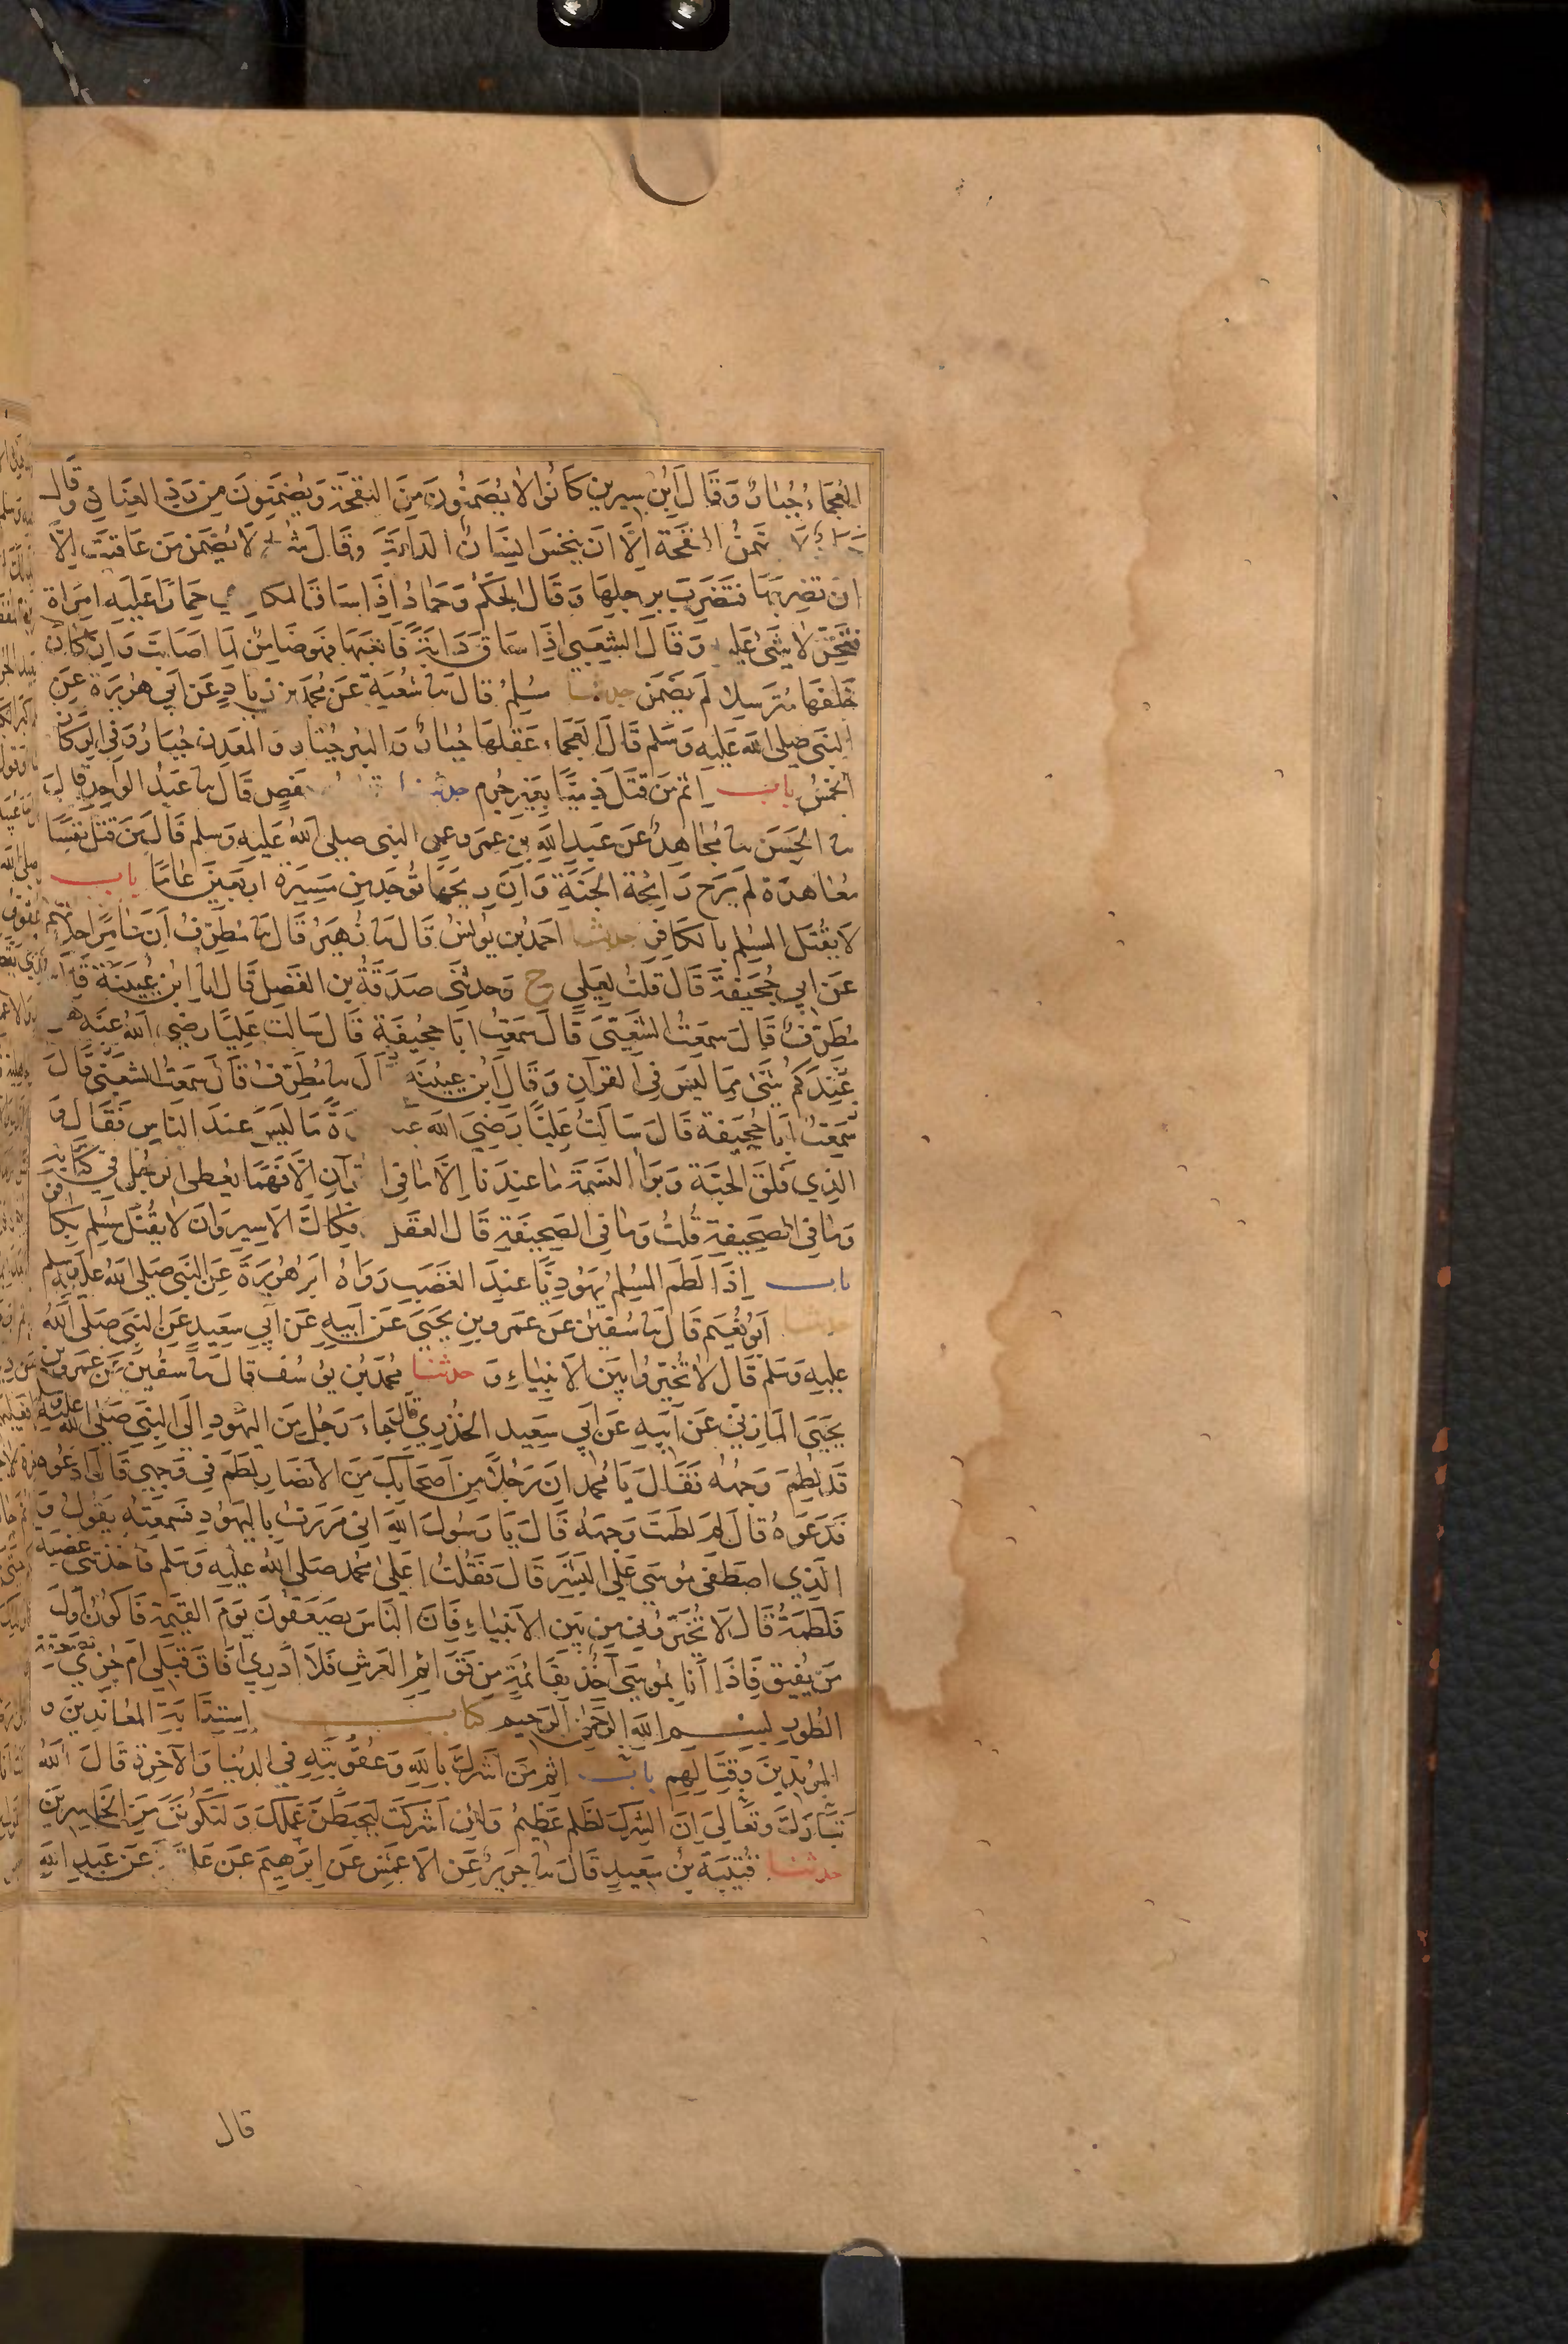 العجماء جبار وقال ابن سيرين كانوا لا يضمنون من النفحة ويضمنون من رد العنان وقال
تضمن النفحة الا ان ينخس انسان الدابة وقال لا يضمن من عاقبت الا
ان تضربها فتضرب برجلها وقال الحكم وحماد اذا ساق المكاري حمارا عليه امراة
فتخر لا شئ عليه وقال الشعبي اذا ساق دابة فاتعبها فهو ضامن لما اصابت وان كان
خلفها مترسلا لم يضمن حدثنا مسلم قال ثنا شعبة عن محمد بن زياد عن ابي هريرة عن
النبي صلى الله عليه وسلم قال العجماء عقلها جبار والبئر جبار والمعدن جبار وفي الركاز
الخمس باب اثم من قتل ذميا بغير جرم حدثنا حفص قال ثنا عبد الواحد قال
ثنا الحسن ثنا مجاهد عن عبد الله بن عمرو عن النبي صلى الله عليه وسلم قال من قتل نفسا
معاهدة لم يرح رائحة الجنة وان ريحها توجد من مسيرة اربعين عاما باب
لا يقتل المسلم بالكافر حدثنا احمد بن يونس قال ثنا زهير قال ثنا مطرف ان عامرا حدثهم
عن ابي جحيفة قال قلت لعلي ح وحدثني صدقة بن الفضل قال انا ابن عيينة قال
مطرف قال سمعت الشعبي قال سمعت ابا جحيفة قال سالت عليا رضي الله عنه هل
عندكم شئ مما ليس في القرآن وقال ابن عيينة قال ثنا مطرف قال سمعت الشعبي قال
سمعت ابا جحيفة قال سالت عليا رضي الله عنه مرة ما ليس عند الناس فقال و
الذي فلق الحبة وبرا النسمة ما عندنا الا ما في القرآن الا فهما يعطى رجل في كتابه
وما في الصحيفة قلت وما في الصحيفة قال العقل وفكاك الاسير وان لا يقتل مسلم بكافر
باب اذا لطم المسلم يهوديا عند الغضب رواه ابو هريرة عن النبي صلى الله عليه وسلم
حدثنا ابو نعيم قال ثنا سفين عن عمرو بن يحيى عن ابيه عن ابي سعيد عن النبي صلى الله
عليه وسلم قال لا تخيروا بين الانبياء و حدثنا محمد بن يوسف قال ثنا سفين عن عمرو بن
يحيى المازني عن ابيه عن ابي سعيد الخدري قال جاء رجل من اليهود الى النبي صلى الله عليه وسلم
قد لطم وجهه فقال يا محمد ان رجلا من اصحابك من الانصار لطم في وجهي قال ادعوه
فدعوه قال لم لطمت وجهه قال يا رسول الله اني مررت باليهود فسمعته يقول و
الذي اصطفى موسى على البشر قال فقلت اعلى محمد صلى الله عليه وسلم فاخذتني غضبة
فلطمته قال لا تخيروني من بين الانبياء فان الناس يصعقون يوم القيمة فاكون اول
من يفيق فاذا انا بموسى آخذ بقائمة من قوائم العرش فلا ادري افاق قبلي ام جزي بصعقة
الطور بسم الله الرحمن الرحيم كتاب استتابة المعاندين و
المرتدين وقتالهم باب اثم من اشرك بالله وعقوبته في الدنيا والآخرة قال الله
تبارك وتعالى ان الشرك لظلم عظيم ولئن اشركت ليحبطن عملك ولتكونن من الخاسرين
حدثنا قتيبة بن سعيد قال ثنا جرير عن الاعمش عن ابرهيم عن علقمة عن عبد الله
قال